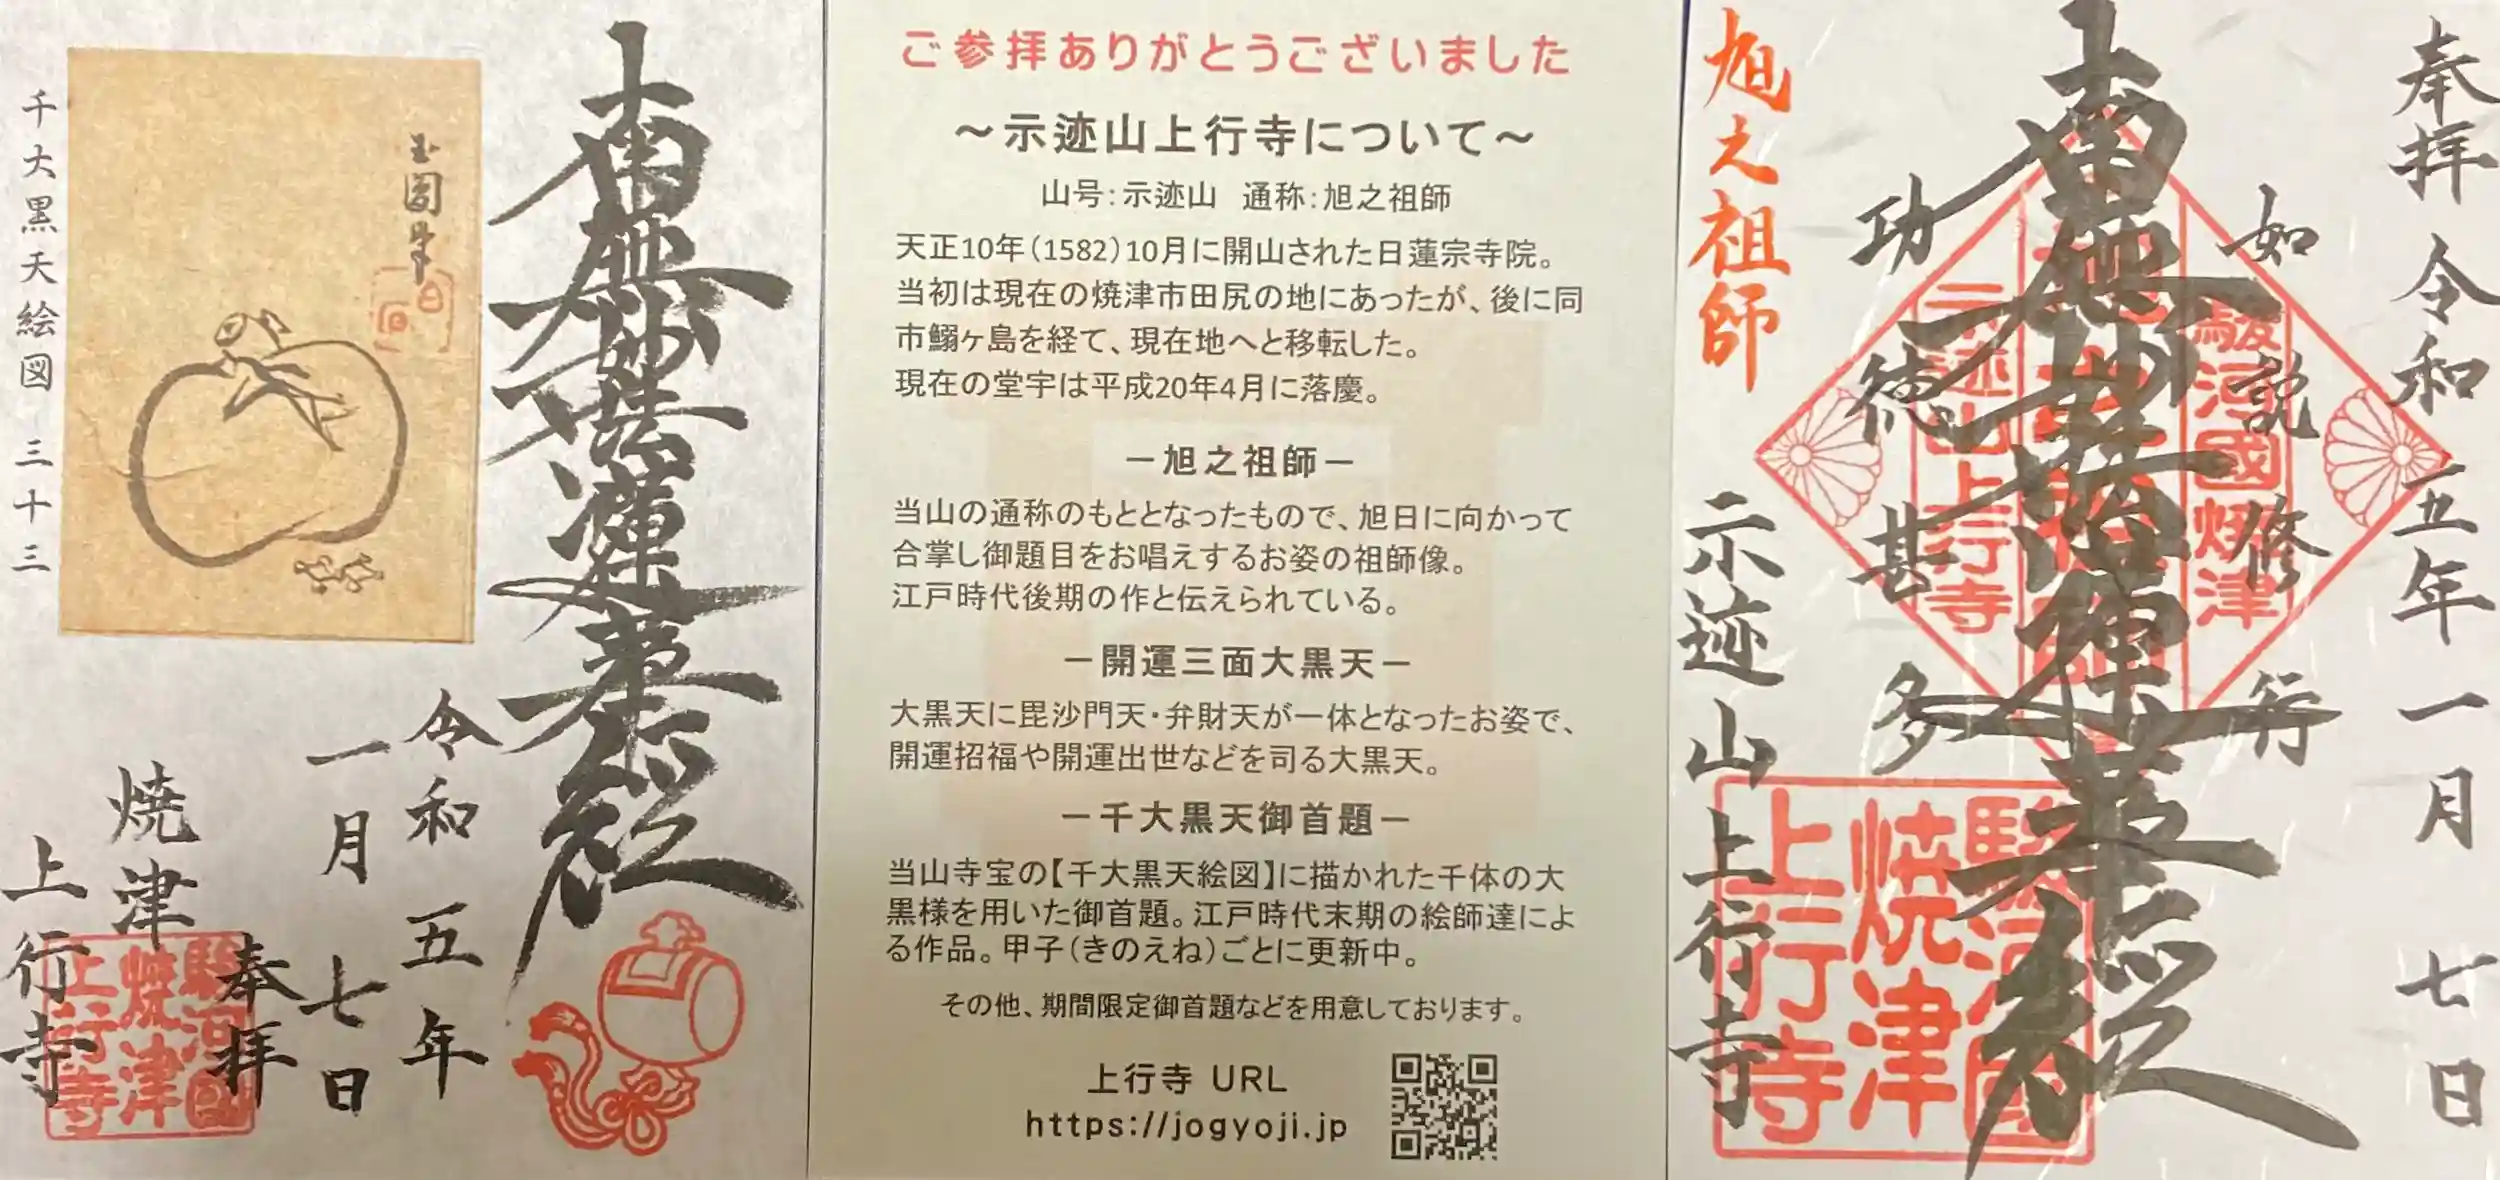 南無妙法蓮華経
玉園筆
千大黒天絵図 三十三
令和五年
一月七日
奉拝
焼津
上行寺
駿河國
焼津
上行寺
ご参拝ありがとうございました
～示迹山上行寺について～
山号：示迹山 通称：旭之祖師
天正10年（1582）10月に開山された日蓮宗寺院。
当初は現在の焼津市田尻の地にあったが、後に同
市鰯ヶ島を経て、現在地へと移転した。
現在の堂宇は平成20年4月に落慶。
－旭之祖師－
当山の通称のもととなったもので、旭日に向かって
合掌し御題目をお唱えするお姿の祖師像。
江戸時代後期の作と伝えられている。
－開運三面大黒天－
大黒天に毘沙門天・弁財天が一体となったお姿で、
開運招福や開運出世などを司る大黒天。
－千大黒天御首題－
当山寺宝の【千大黒天絵図】に描かれた千体の大
黒様を用いた御首題。江戸時代末期の絵師達によ
る作品。甲子（きのえね）ごとに更新中。
その他、期間限定御首題などを用意しております。
上行寺 URL
https://jogyoji.jp
奉拝 令和五年一月七日
如説修行
南無妙法蓮華経
功徳甚多
旭之祖師
示迹山上行寺
駿河國焼津
示迹山上行寺
駿河國
焼津
上行寺